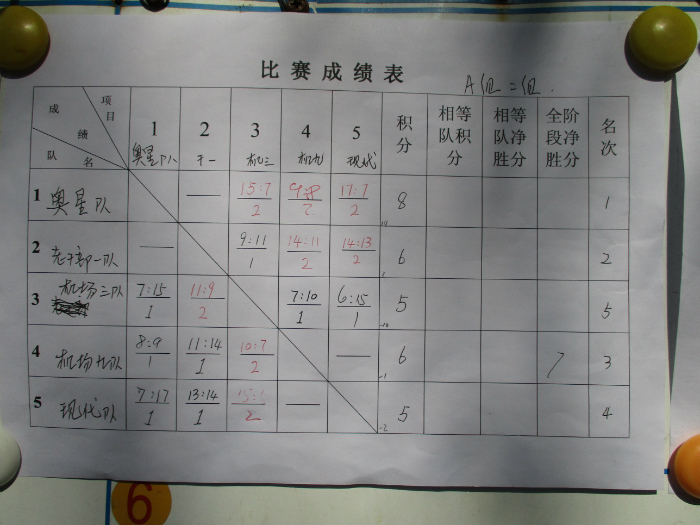 比赛成绩表
A组 二组.
成绩 项目 队名 1 2 3 4 5 积分 相等队积分 相等队净胜分 全阶段净胜分 名次
奥星队 干一 机三 机九 现代
1 奥星队 — 15:7/2 9:8/2 17:7/2 8 1
2 老干部一队 — 9:11/1 14:11/2 14:13/2 6 2
3 机场三队 7:15/1 11:9/2 7:10/1 6:15/1 -10 5 5
4 机场九队 8:9/1 11:14/1 10:7/2 — -1 6 7 3
5 现代队 7:17/1 13:14/1 15:6/2 — -2 5 4
6